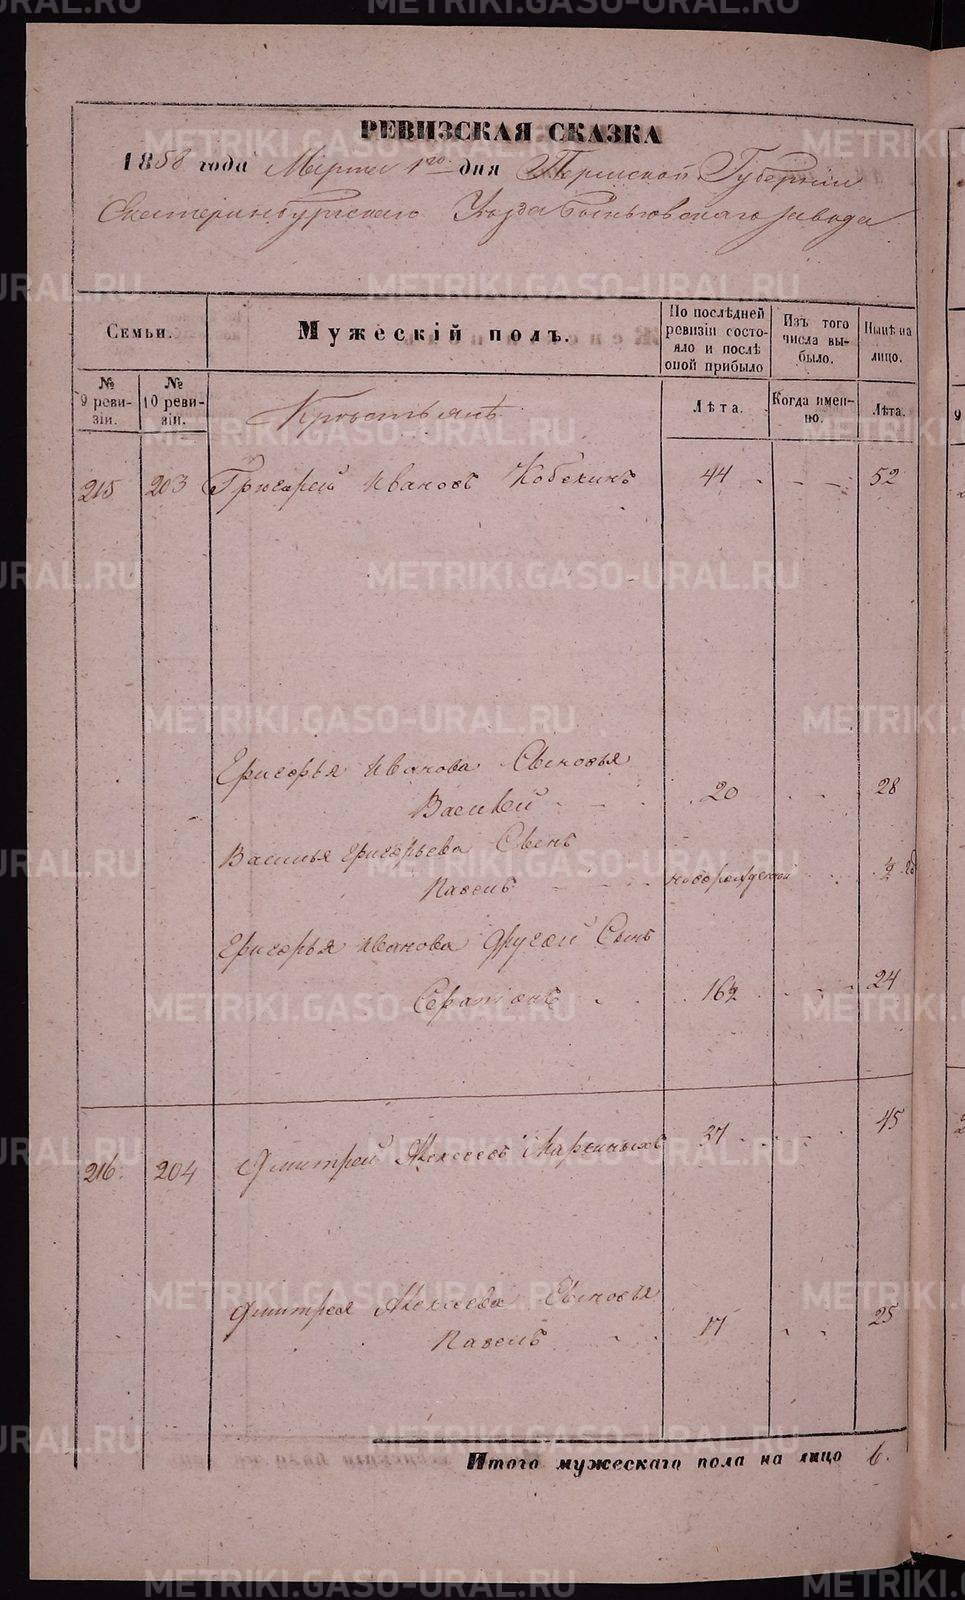 РЕВИЗСКАЯ СКАЗКА
1858 года Марта 1го дня Пермской Губернии
Екатеринбургскаго Уезда Быньговскаго завода
Семьи.
Мужескій полъ.
По послѣдней ревизіи состояло и послѣ оной прибыло
Изъ того числа выбыло.
Нынѣ на лицо.
№ 9 ревизіи.
№ 10 ревизіи.
Крестьянѣ
Лѣта.
Когда именно.
Лѣта.
215 203 Григорей Ивановъ Кобелинъ 44 52
Григорья Иванова Сыновья
Василей 20 28
Василья Григорьева Сынъ
Павелъ новорожденой ½ го
Григорья Иванова другой Сынъ
Серапіонъ 16½ 24
216. 204 Дмитрей Алексеевъ 37 45
Дмитрея Алексеева Сыновья
Павелъ 17 25
Итого мужескаго пола на лицо 6.
METRIKI.GASO-URAL.RU